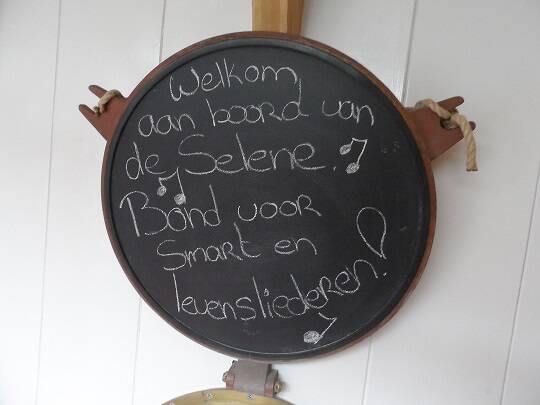 Welkom
aan boord van
de Selene.
Bond voor
Smart en
levensliederen!